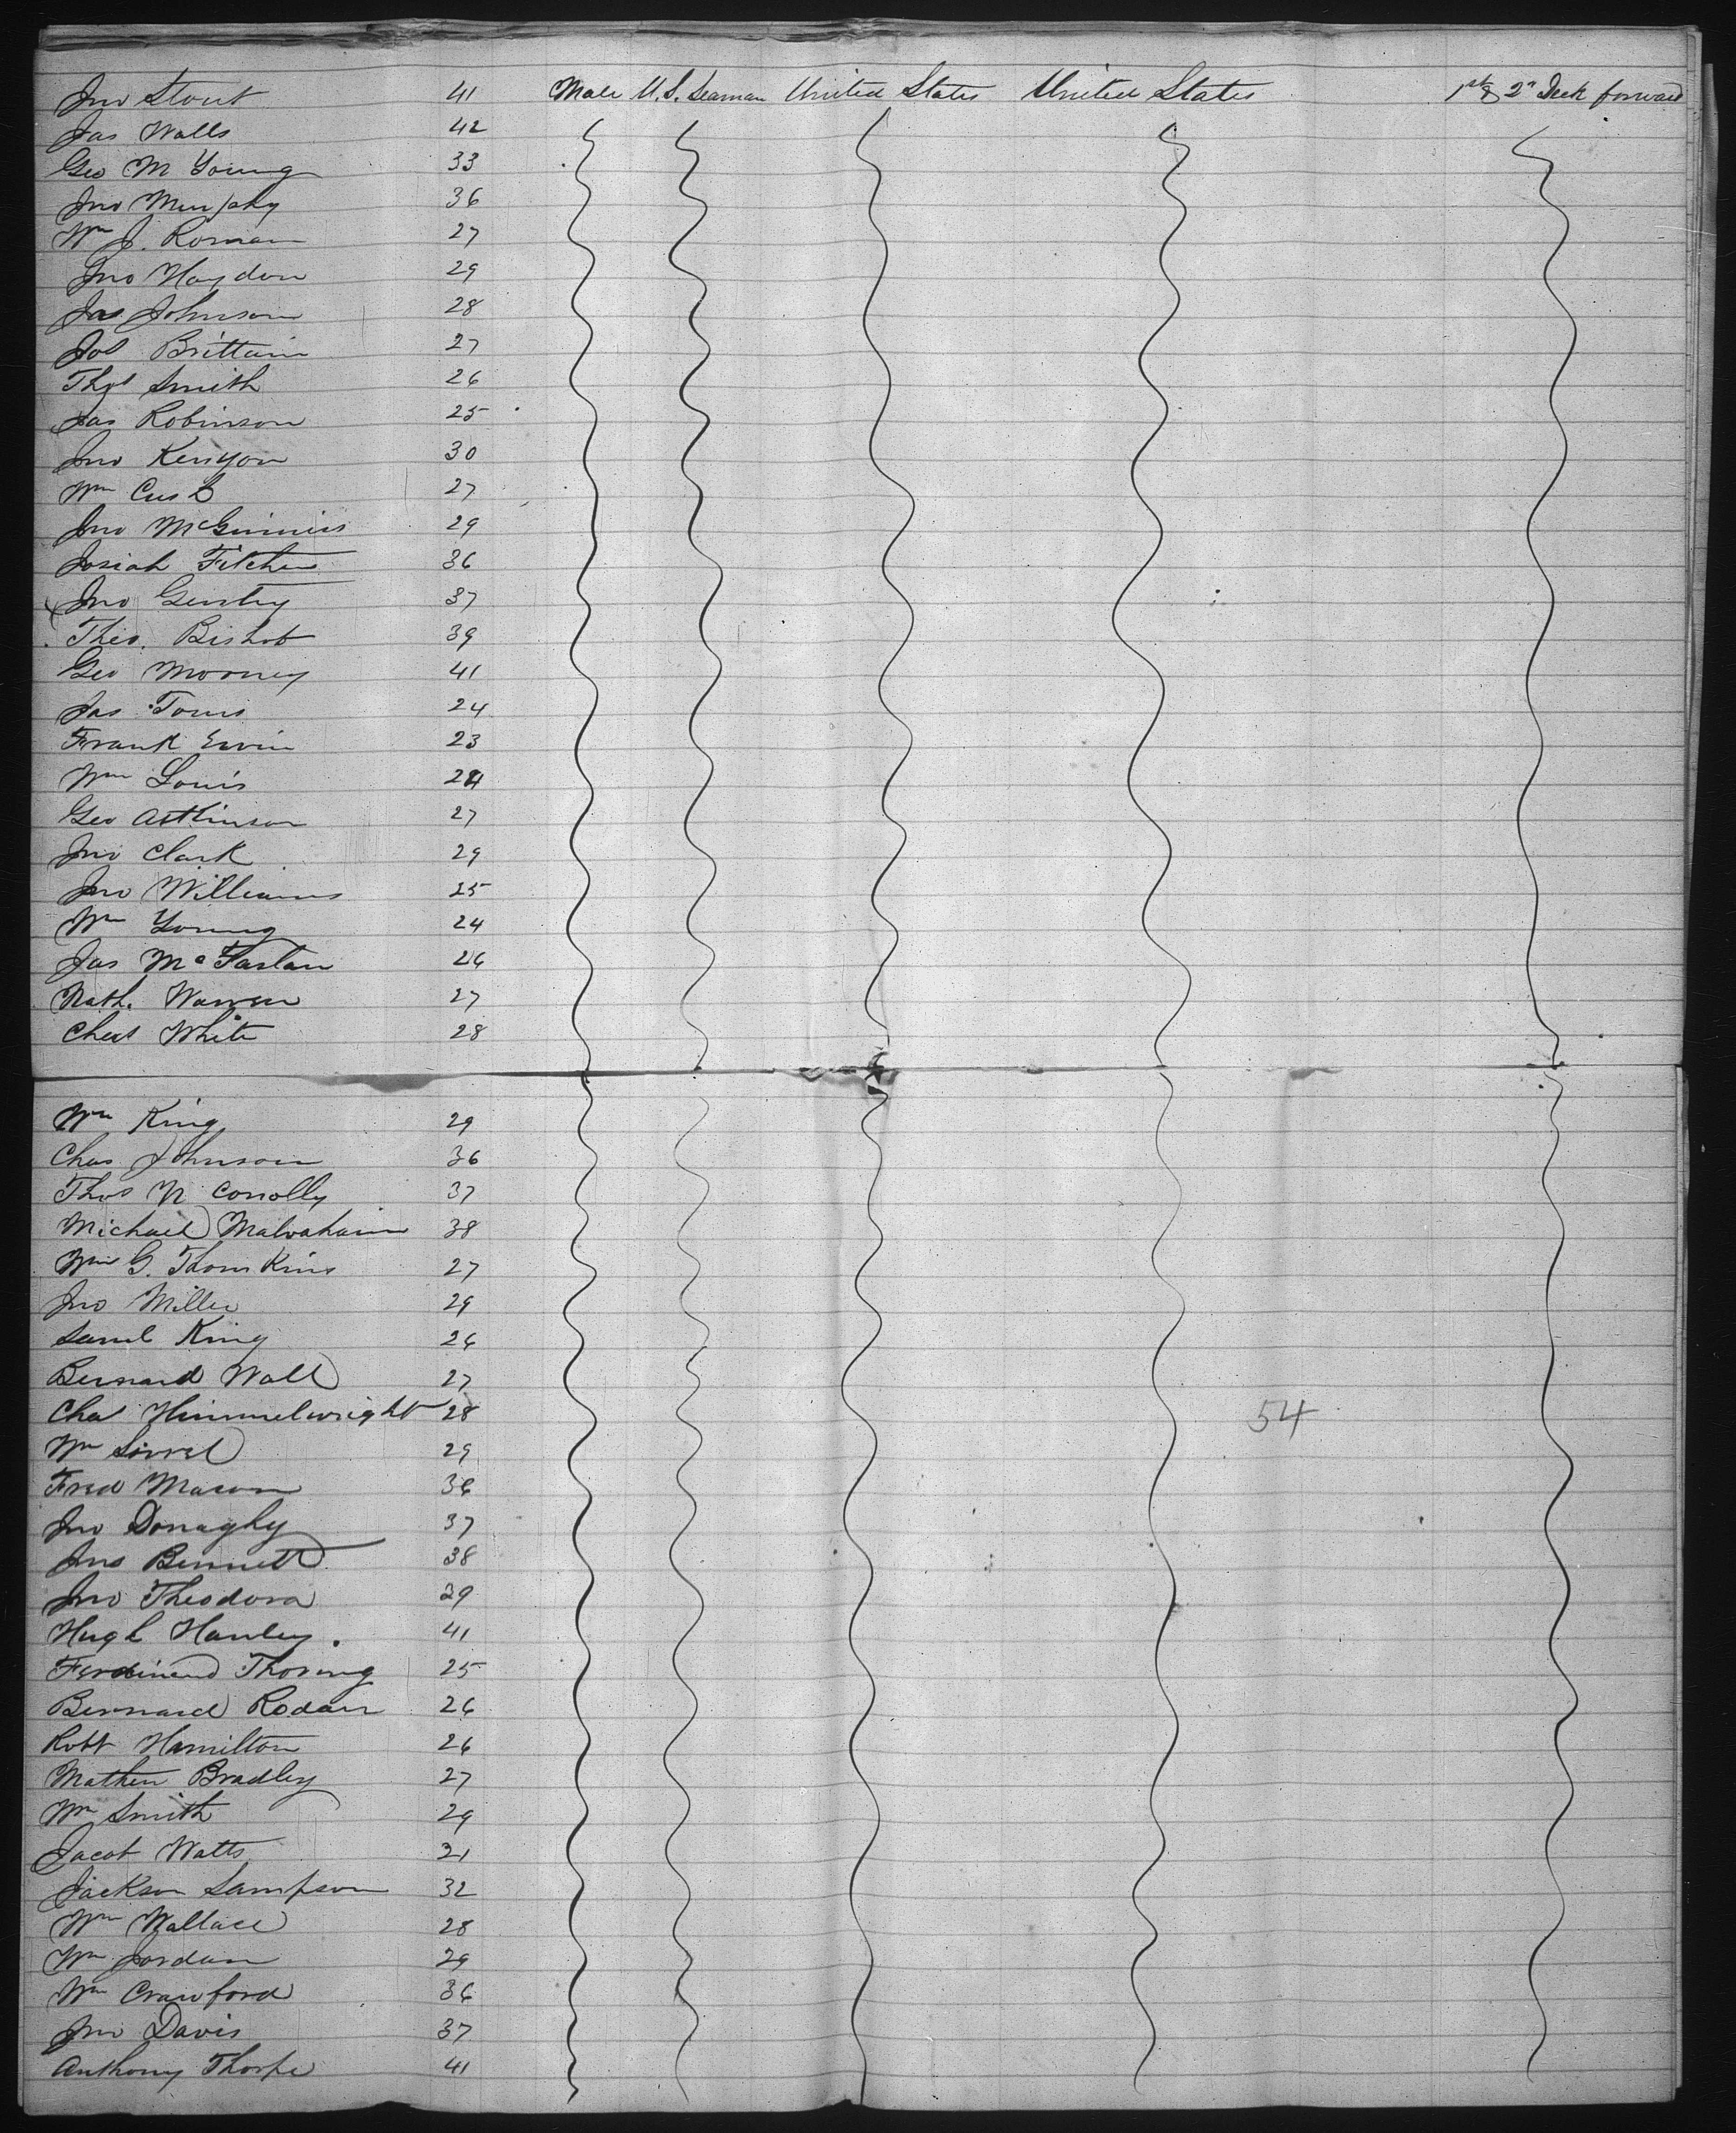 Jno Stout 41 Male U.S. Seaman United States United States 1st & 2n Deck forward
Jas Walls 42
Geo M Young 33
Jno Murphy 36
Wm J. Roman 27
Jno Haydon 29
Jas Johnson 28
Jos Brittain 27
Thos Smith 26
Jas Robinson 25
Jno Kenyon 30
Wm 27
Jno McGinniss 29
Josiah Fitcher 36
Jno Gentry 37
Theo. Bishop 39
Geo Mooney 41
Jas Toms 24
Frank Ervin 23
Wm Louis 24
Geo Attkinson 27
Jno Clark 29
Jno Williams 25
Wm Young 24
Jas McFarlan 26
Nath. Warren 27
Chas White 28
Wm King 29
Chas Johnson 36
Thos N Conolly 37
Michael 38
Wm G. Thomkins 27
Jno Miller 29
Saml King 26
Bernard Wall 27
Chas Himmelwright 28
Wm Sorrel 29
Fred Mason 36
Jno Donaghy 37
Jno Bennett 38
Jno Theodora 39
Hugh Hanley. 41
Ferdinand Thoring 25
Bernard Rodan 26
Robt Hamilton 26
Mathew Bradley 27
Wm Smith 29
Jacob Watts 31
Jackson Sampson 32
Wm Wallace 28
Wm Jordan 29
Wm Crawford 36
Jno Davis 37
Anthony Thorpe 41
54